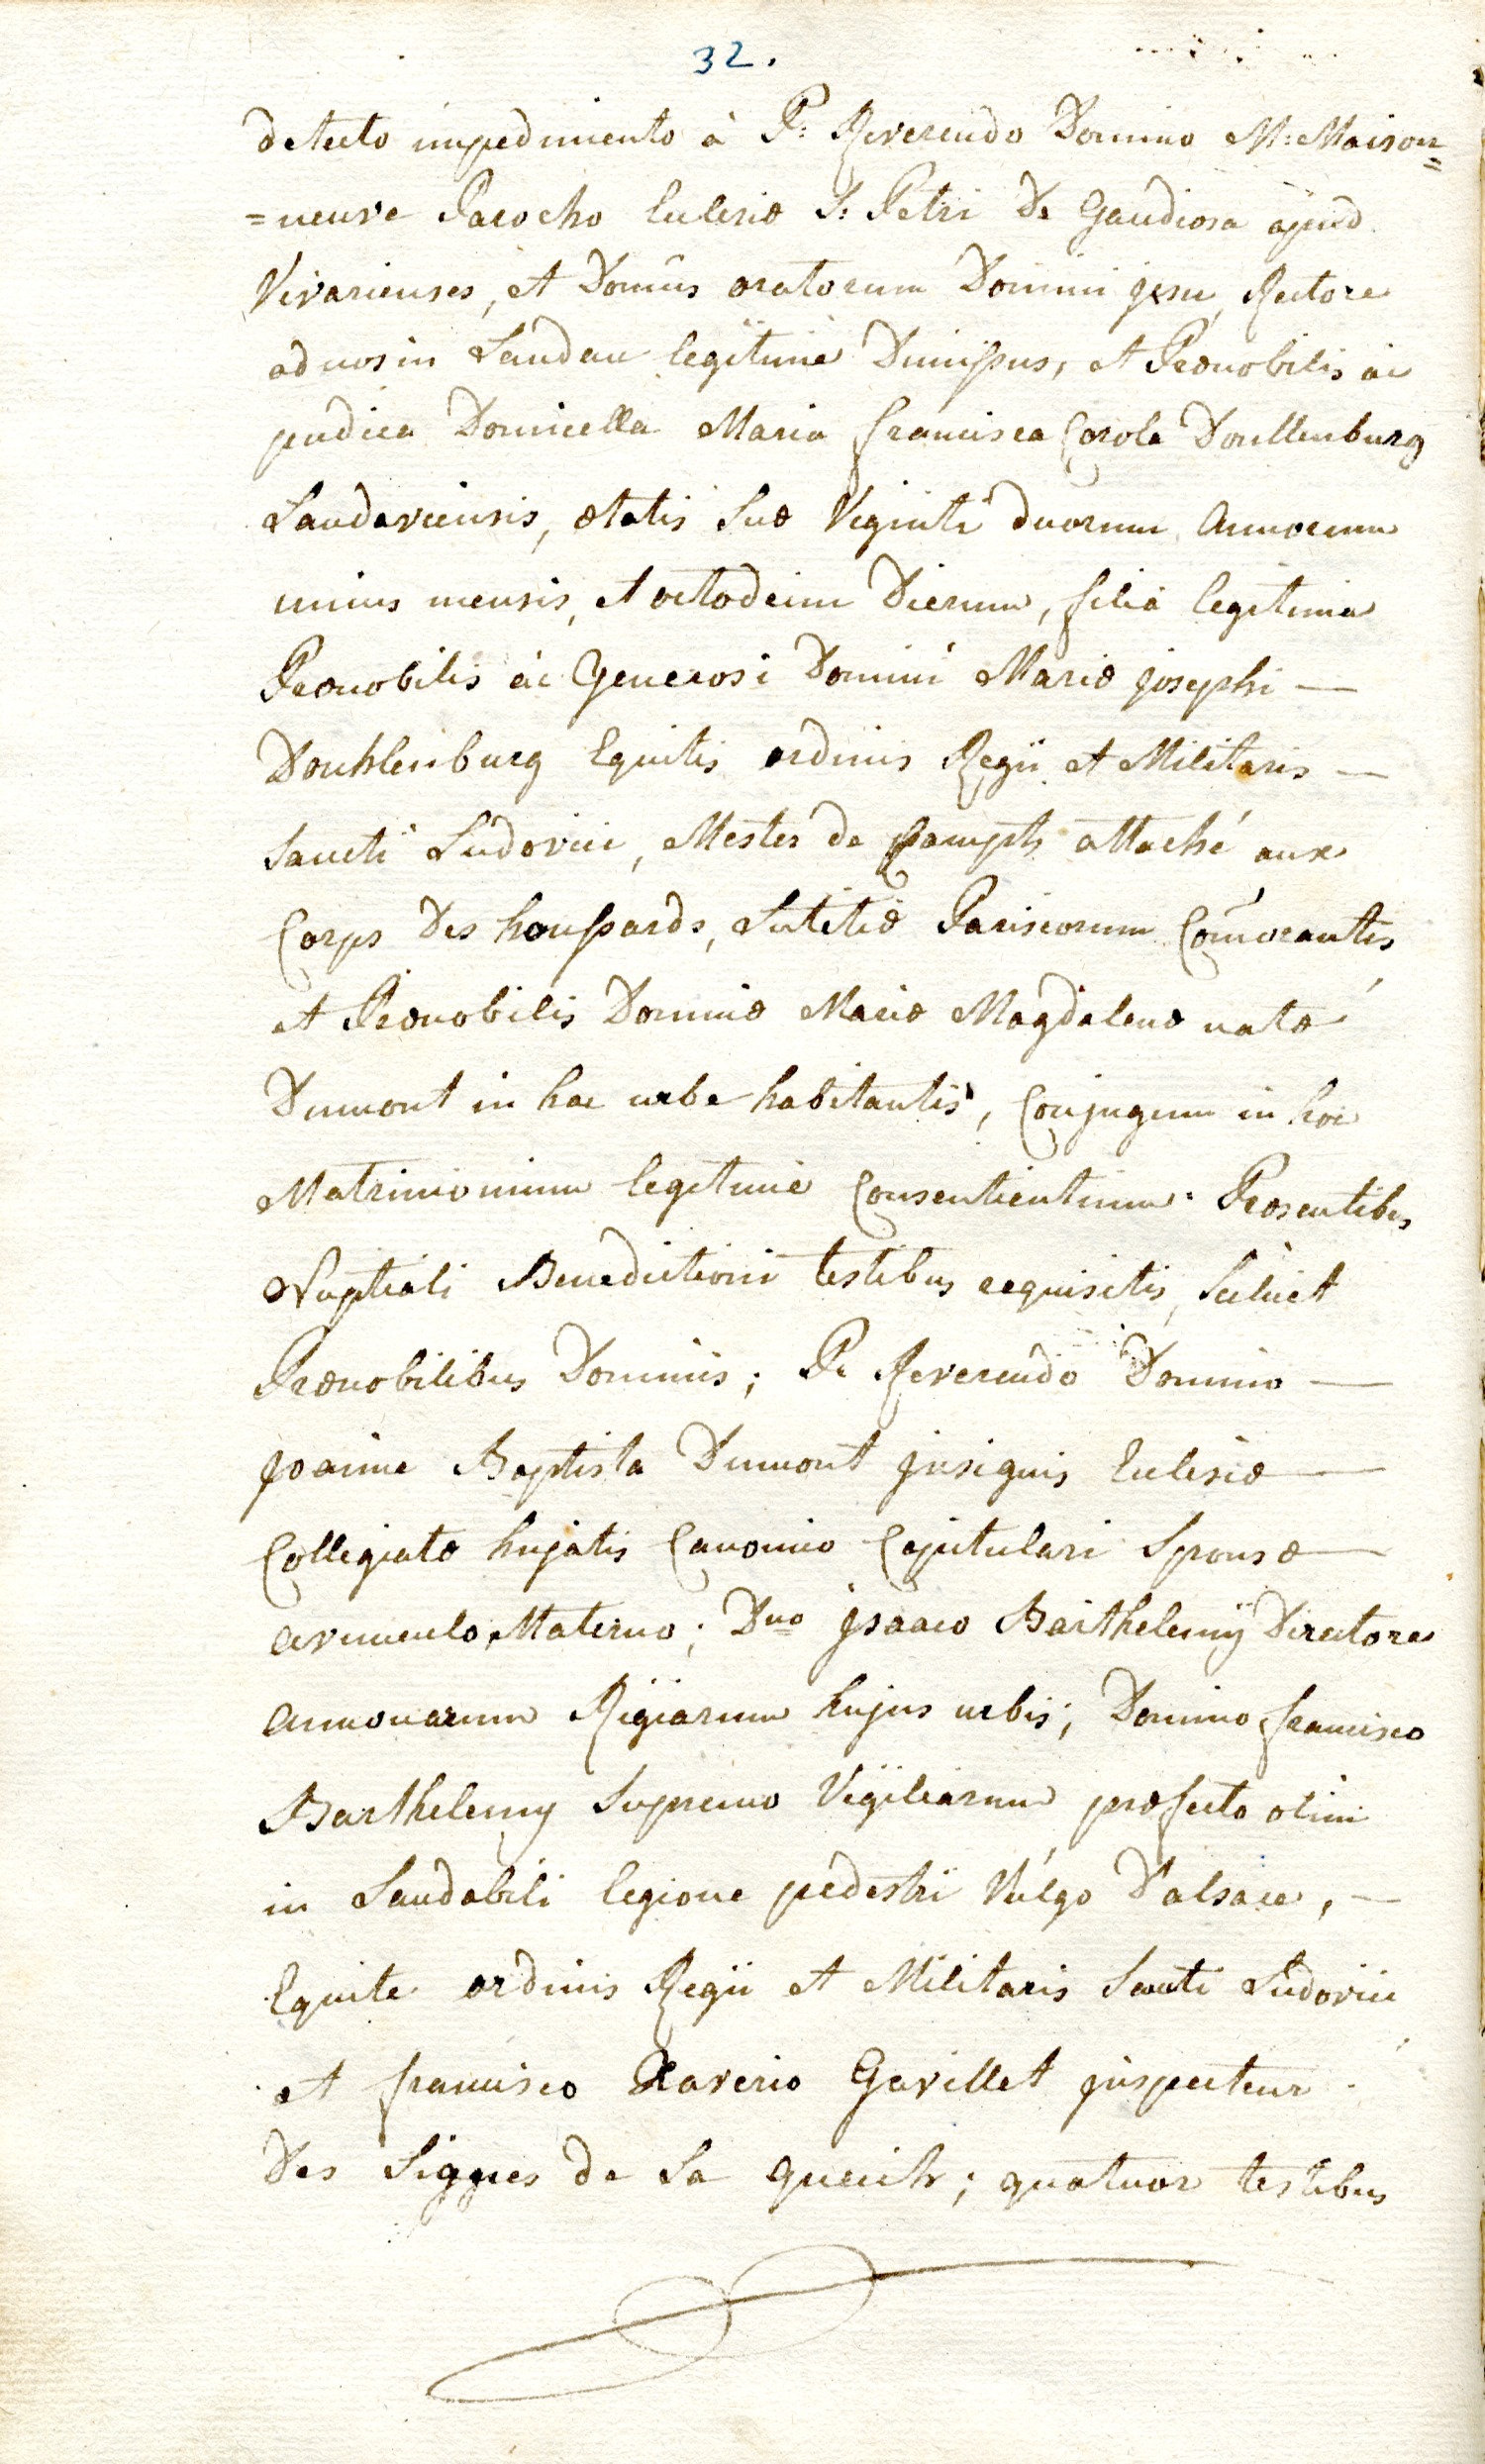 32.
detecto impedimento à P: Reverendo Domino M: Maison=
=neuve Parocho Ecclesiæ S: Petri De Gaudiosa apud
Vivarienses, et Domûs oratorum Domini jesu, Rectore
ad nos in Landau legitimè Dimissus, et Prænobilis ac
pudica Domicella Maria francisca Carola Doullenburg
Landaviensis, ætatis Suæ Viginti duorum annorum
unius mensis, et octodecim Dierum, filia legitima
Prænobilis ac Generosi Domini Mariæ josephi —
Douhlenburg Equitis ordinis Regii et Militaris —
Sancti Ludovici, Mestes de Camph attaché aux
Corps Des houssards, Lutetiæ Parisiorum Com̃orantis
et Prænobilis Dominæ Mariæ Magdalenæ natæ
Dumont in hac urbe habitantis, Conjugum in hoc
Matrimonium legitimè Consentientium. Præsentibus
Nuptiali Benedictioni testibus requisitis, Scilicet
Prænobilibus Dominis; P. Reverendo Domino —
joanne Baptista Dumont jnsignis Ecclesiæ —
Collegiatæ hujatis Canonico Capitulari Sponsæ —
avunculo Materno; Dno jsaaco Barthelemÿ Directore
annonarum Regiarum hujus urbis; Domino francisco
Barthelemy Supremo Vigiliarum præfecto olim
in Laudabili legione pedestri Vulgo D'alsace, —
Equite ordinis Regii et Militaris Sancti Ludovici
et francisco Xaverio Gavillet jnspecteur
Des Lignes de La queich; quatuor testibus